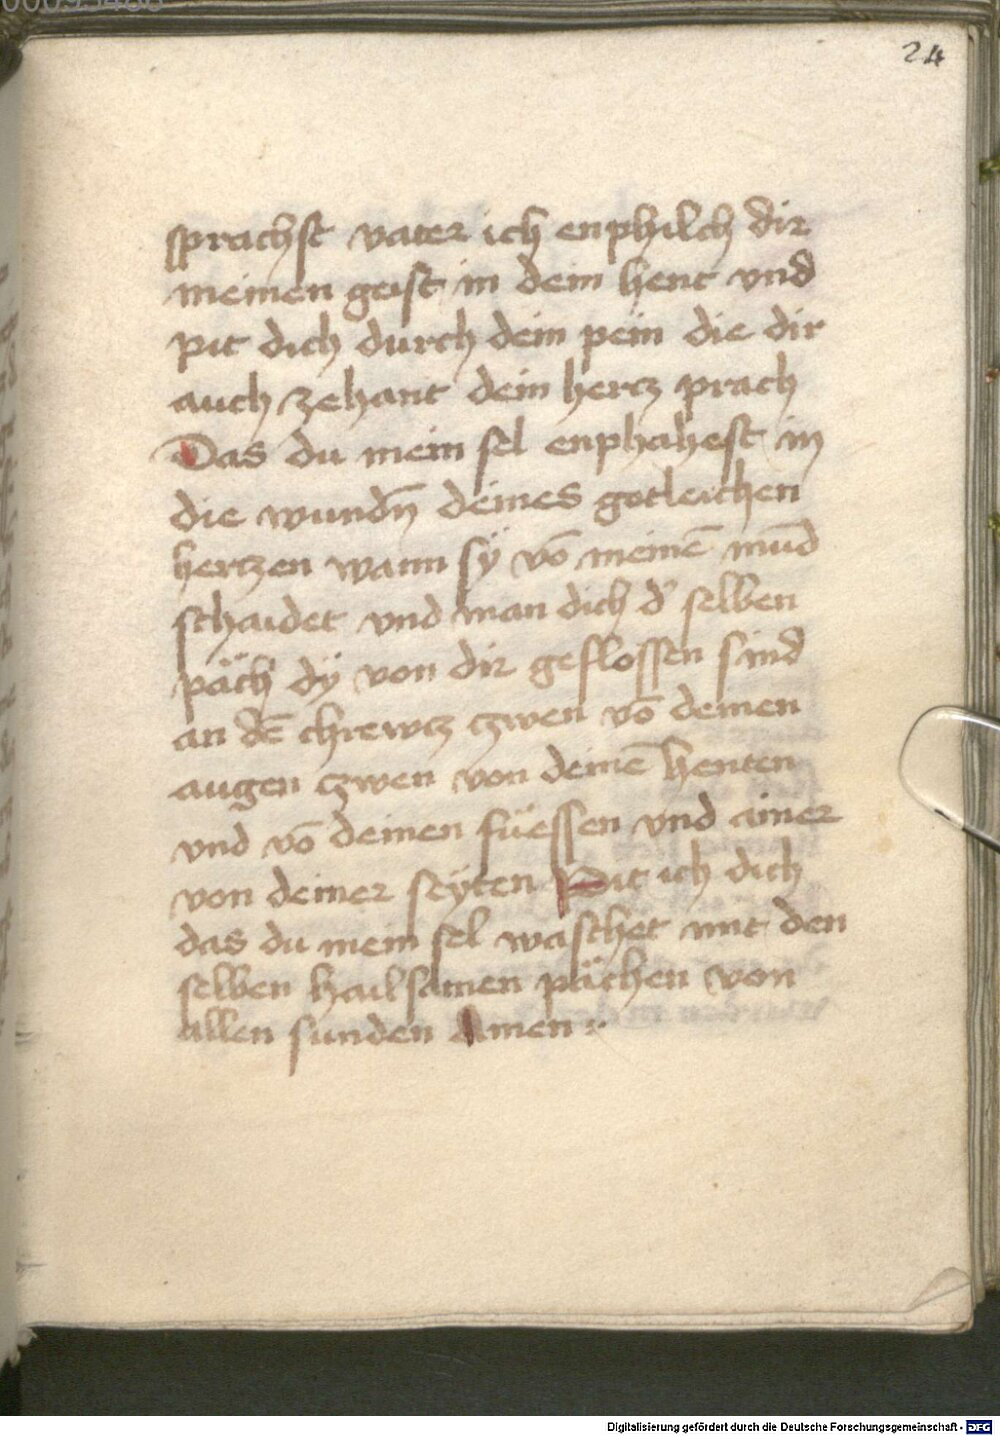 24
sprachst vater ich enphilch dir
meinen geist in dein hent vnd
pit dich durch dein pein die dir
auch zehant dein hertz prach
Das du mein sel enphahest in
die wundn̄ deines gotleichen
hertzen wann sÿ vō meinē mūd
schaidet vnd man dich d' selben
päch dÿ von dir geflossen sind
an dē chrewcz czwen vō deinen
augen czwen von deinē henten
vnd vō deinen füessen vnd ainer
von deiner seÿten Pit ich dich
das du mein sel waschet mit den
selben hailsamen pächen von
allen sunden Amen :
Digitalisierung gefördert durch die Deutsche Forschungsgemeinschaft - DFG